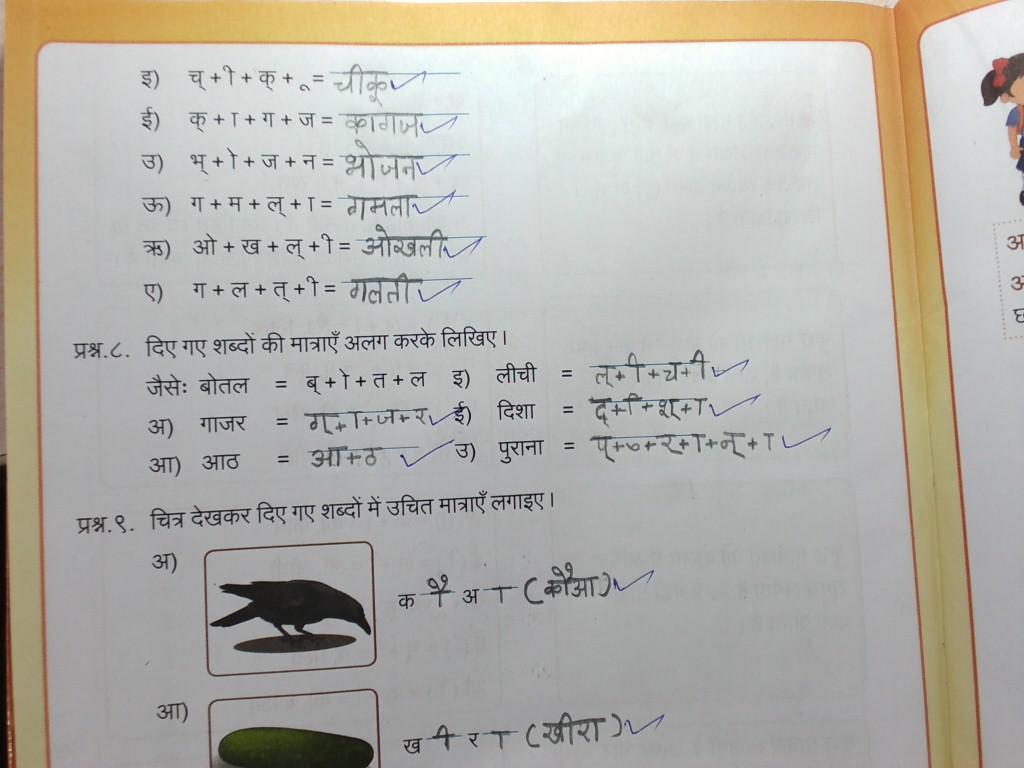 इ) च् + ी + क् + ू = चीकू
ई) क् + ा + ग + ज = कागज
उ) भ् + ो + ज + न = भोजन
ऊ) ग + म + ल् + ा = गमला
ऋ) ओ + ख + ल् + ी = ओखली
ए) ग + ल + त् + ी = गलती
प्रश्न.८. दिए गए शब्दों की मात्राएँ अलग करके लिखिए।
जैसेः बोतल = ब् + ो + त + ल इ) लीची = ल् + ी + च + ी
अ) गाजर = ग् + ा + ज + र ई) दिशा = द् + ि + श् + ा
आ) आठ = आ + ठ उ) पुराना = प् + ु + र + ा + न् + ा
प्रश्न.९. चित्र देखकर दिए गए शब्दों में उचित मात्राएँ लगाइए।
अ) क ौ अ ा (कौआ)
आ) ख ी र ा (खीरा)
अ
अ
छ